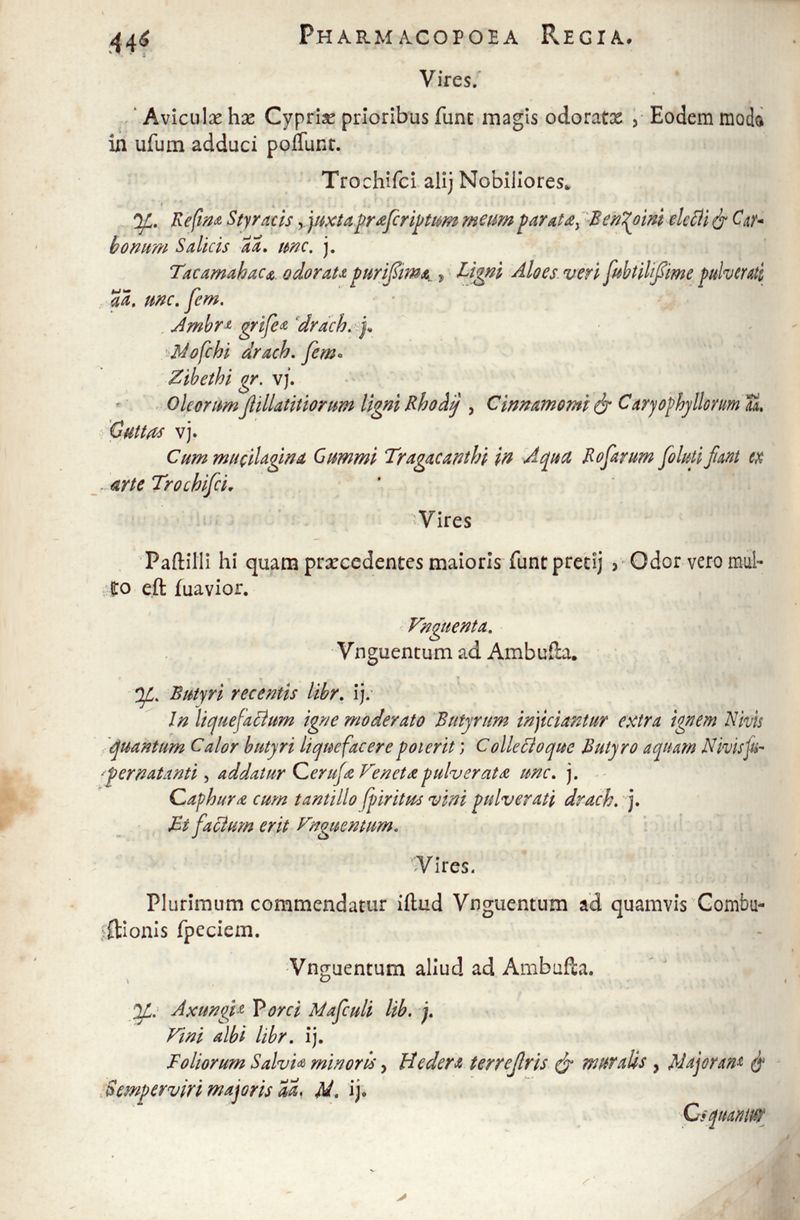 446 PHARMACOPOEA REGIA.
Vires.
Aviculæ hæ Cypriæ prioribus ſunt magis odoratæ , Eodem modo
in uſum adduci poſſunt.
Trochiſci alij Nobiliores.
℞. Reſinæ Styracis , juxta præſcriptum meum parata, Benzoini electi & Car-
bonum Salicis aā. unc. j.
Tacamahacæ odoratæ puriſsimæ , Ligni Aloes veri ſubtiliſsime pulverati
aā. unc. ſem.
Ambræ griſeæ drach. j.
Moſchi drach. ſem.
Zibethi gr. vj.
Oleorum ſtillatitiorum ligni Rhodij , Cinnamomi & Caryophyllorum aā.
Guttas vj.
Cum mucilagina Gummi Tragacanthi in Aqua Roſarum ſoluti fiant ex
arte Trochiſci.
Vires
Paſtilli hi quam præcedentes maioris ſunt pretij , Odor vero mul-
to eſt ſuavior.
Vnguenta.
Vnguentum ad Ambuſta.
℞. Butyri recentis libr. ij.
In liquefactum igne moderato Butyrum injiciantur extra ignem Nivis
quantum Calor butyri liquefacere poterit ; Collectoque Butyro aquam Nivis ſu-
pernatanti , addatur Ceruſæ Venetæ pulveratæ unc. j.
Caphuræ cum tantillo ſpiritus vini pulverati drach. j.
Et factum erit Vnguentum.
Vires.
Plurimum commendatur iſtud Vnguentum ad quamvis Combu-
ſtionis ſpeciem.
Vnguentum aliud ad Ambuſta.
℞. Axungiæ Porci Maſculi lib. j.
Vini albi libr. ij.
Foliorum Salviæ minoris , Hederæ terreſtris & muralis , Majoranæ &
Sempervivi majoris aā. M. ij.
Coquantur